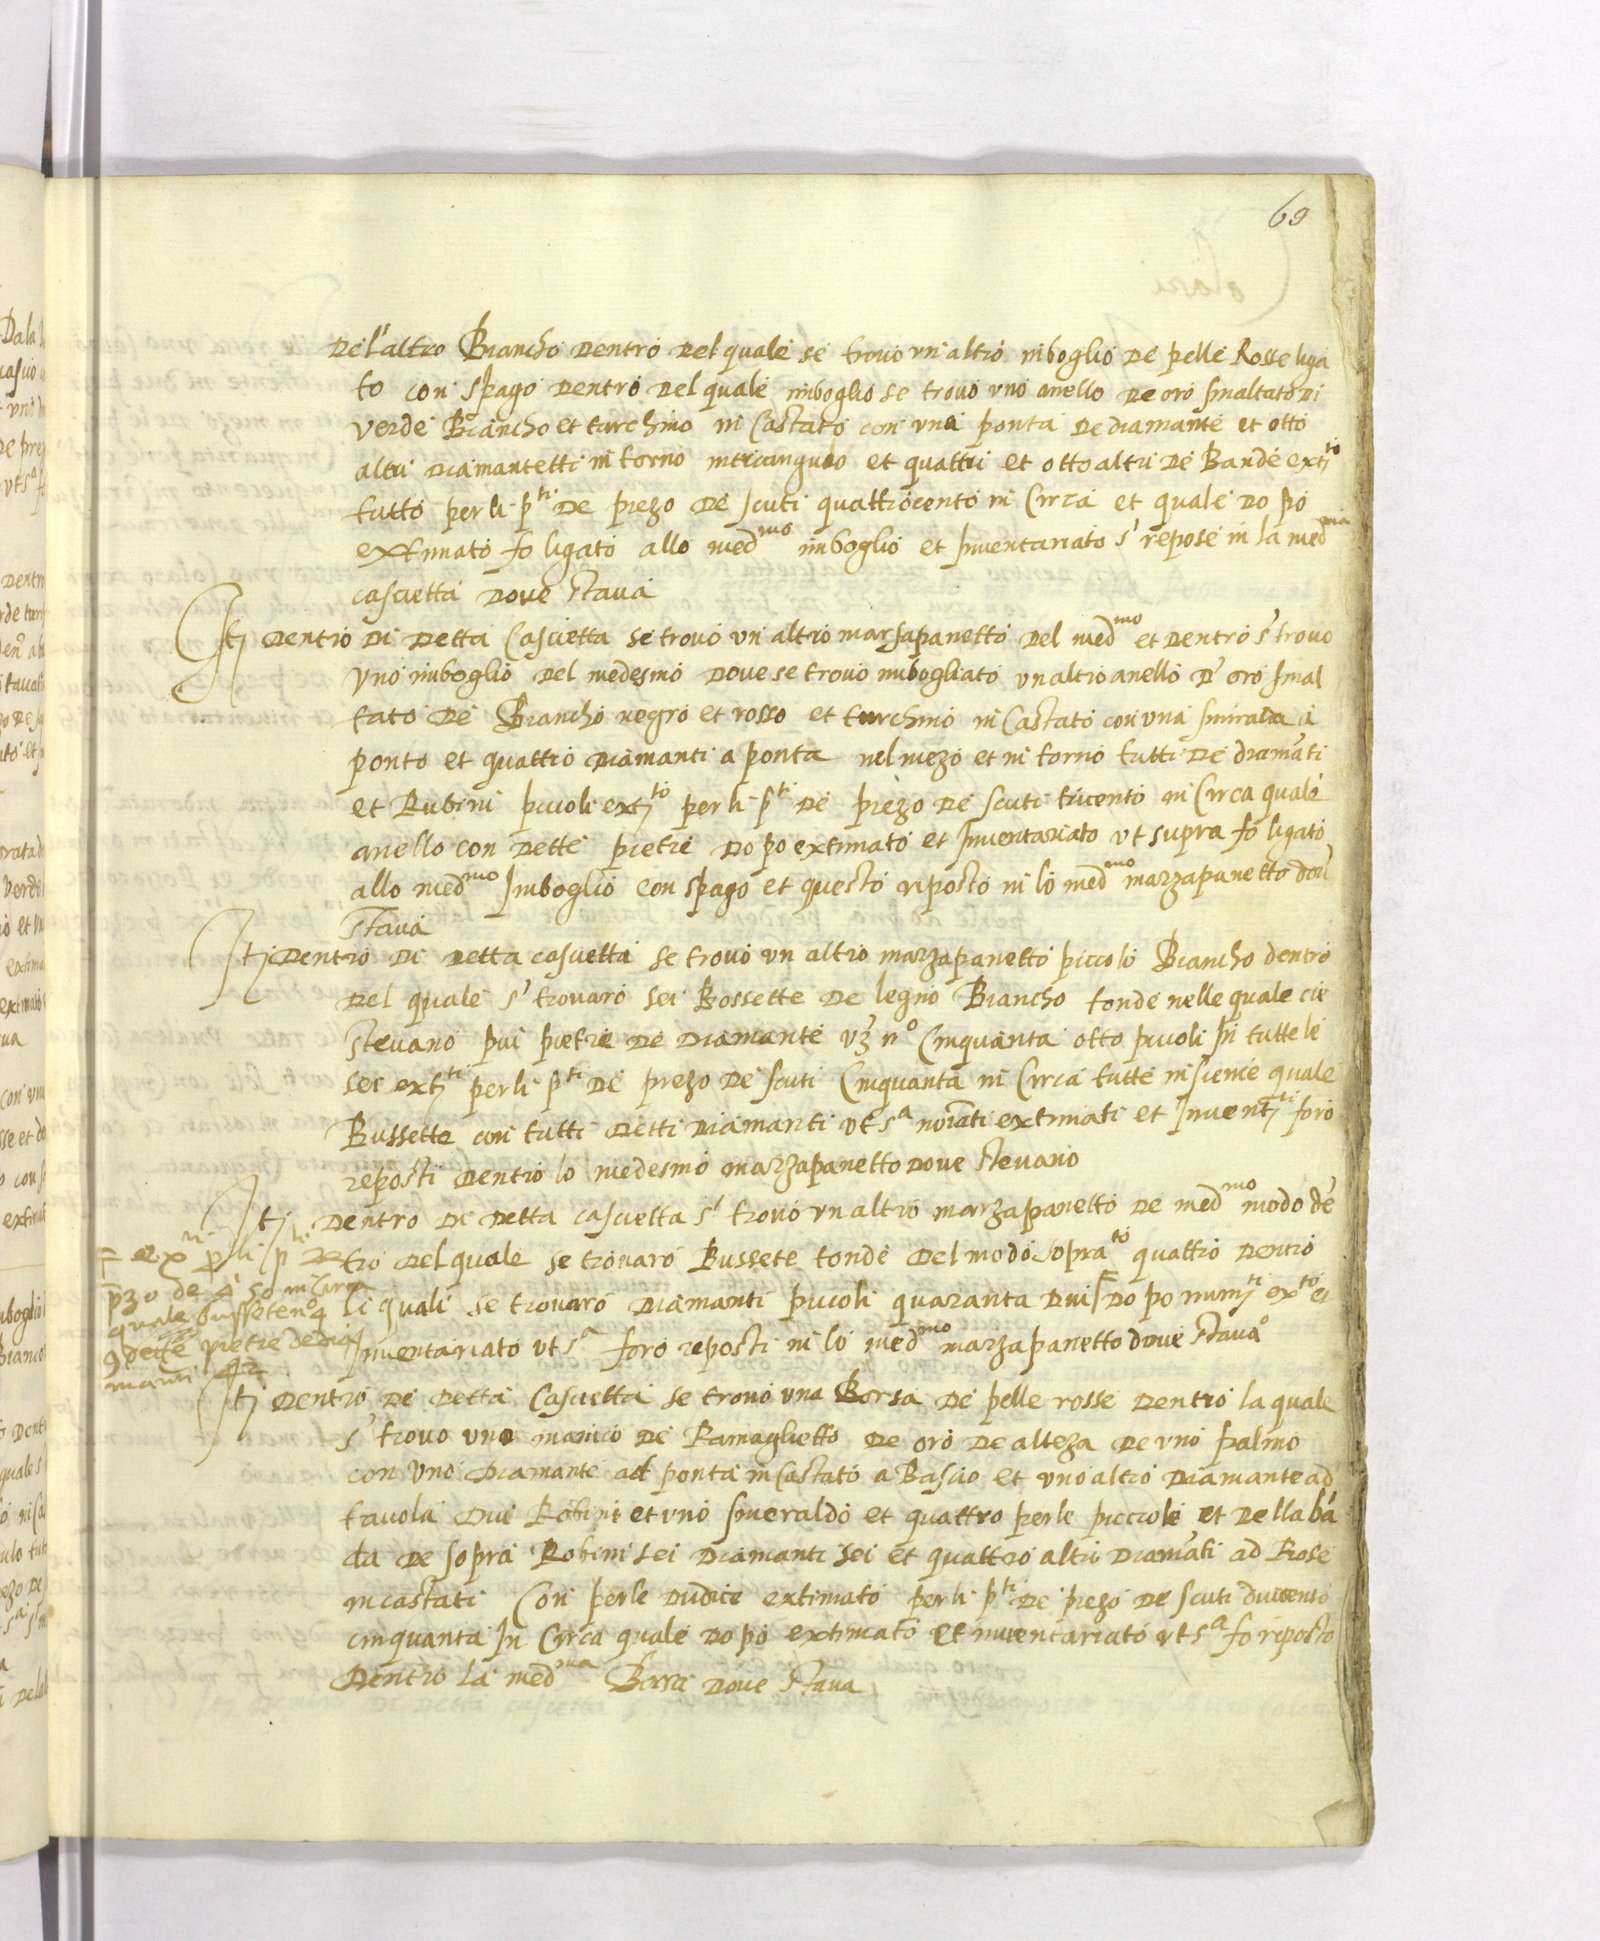 69
del'altro Biancho dentro del quale se trovo un altro inboglio de pelle Rosse liga
to con spago dentro del quale inboglio se trovo uno anello de oro smaltato di
verde Biancho et turchino in Castato con una ponta de diamante et otto
altri diamantetti in torno in triangulo et quattri et otto altri de Bande ext.to
tutto per li p.ti de prezo de scuti quattrocento in Circa et quale do po
extimato fo ligato allo med.mo inboglio et Inventariato s' repose in la med.ma
cascietta dove stava
It. dentro di detta Cascietta se trovo un altro marsapanetto del med.mo et dentro s' trovo
uno inboglio del medesmo dove se trovo inbogliato un altro anello d' oro smal
tato de Biancho negro et rosso et turchino in Castato con una smiralda a
ponto et quattro diamanti a ponta nel mezo et in torno tutti de diamāti
et Rubini picoli ext.to per li p.ti de prezo de scuti tricento in Circa quale
anello con dette pietre do po extimato et Inventariato ut supra fo ligato
allo med.mo Imboglio con spago et questo riposto in lo med.mo marzapanetto dov'
stava
It. dentro di detta cascietta se trovo un altro marzapanetto piccolo Biancho dentro
del quale s' trovaro sei Bossette de legno Biancho tonde nelle quale cie
stevano piu pietre de diamante vz n.o Cinquanta otto picoli in tutte le
sei ext.ti per li p.ti de prezo de scuti Cinquanta in Circa tutte insieme quale
Bussette con tutti detti diamanti ut s.a noīati extimati et Invent.ti foro
reposti dentro lo medesmo marzapanetto dove stevano
It. dentro di detta cascietta s' trovo un altro marzapanetto de med.mo modo dē
tro del quale se trovaro Bussete tonde del modo sopra.to quattro dentro
li quali se trovaro diamanti picoli quaranta dui do po num.ti ex.to et
Inventariato ut s.a foro reposti in lo med.mo marzapanetto dove stava.o
ex.ti p li p.ti de
pzo de 50 in Circa
quale bussete n.o 4
9 dette pietre de dia
manti 42
It. dentro de detta Cascietta se trovo una Borsa de pelle rosse dentro la quale
s' trovo uno manico de Ramaglietto de oro de alteza de uno palmo
con uno diamante ad ponta in Castato a Bascio et uno altro diamante ad
tavola dui Robini et uno smeraldo et quattro perle piccole et della bā
da de sopra Robini sei diamanti sei et quattro altri diamāti ad Rose
incastati Con perle dudice extimato per li p.ti de prezo de scuti ducento
cinquanta In Circa quale do po extimato et inventariato ut s.a fo riposto
dentro la med.ma Borsa dove stava